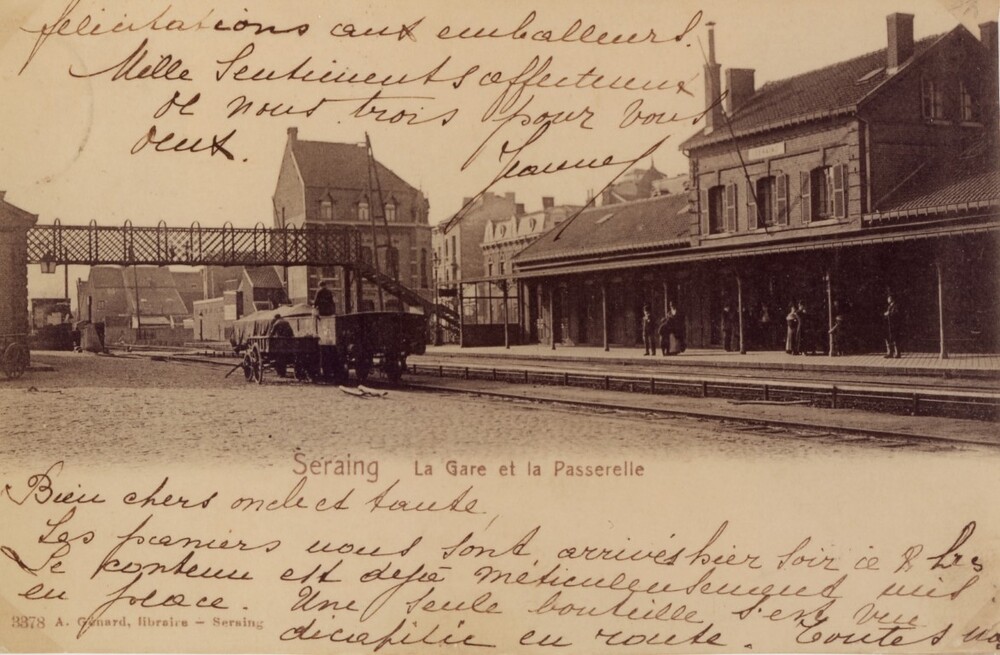 félicitations aux emballeurs.
Mille Sentiments affectueux
de nous trois pour vous
deux.
Jeanne
Seraing La Gare et la Passerelle
Bien chers oncle et tante,
Les paniers nous sont arrivés hier soir à 8 hrs
Le contenu est déjà méticuleusement mis
en place. Une seule bouteille s'est vue
3378 A. Génard, libraire – Seraing
décapitée en route. Toutes